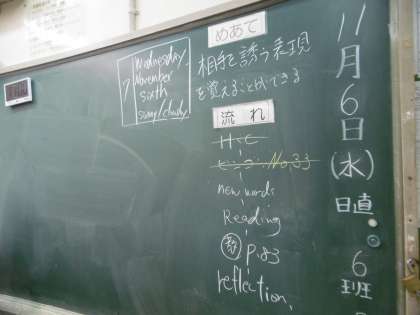 11月6日(水)
日直
6班
めあて
相手を誘う表現
を覚えることができる
Wednesday,
November
sixth
sunny/cloudy
流れ
H C
ビンゴ No.33
new words
Reading
P.83
reflection.